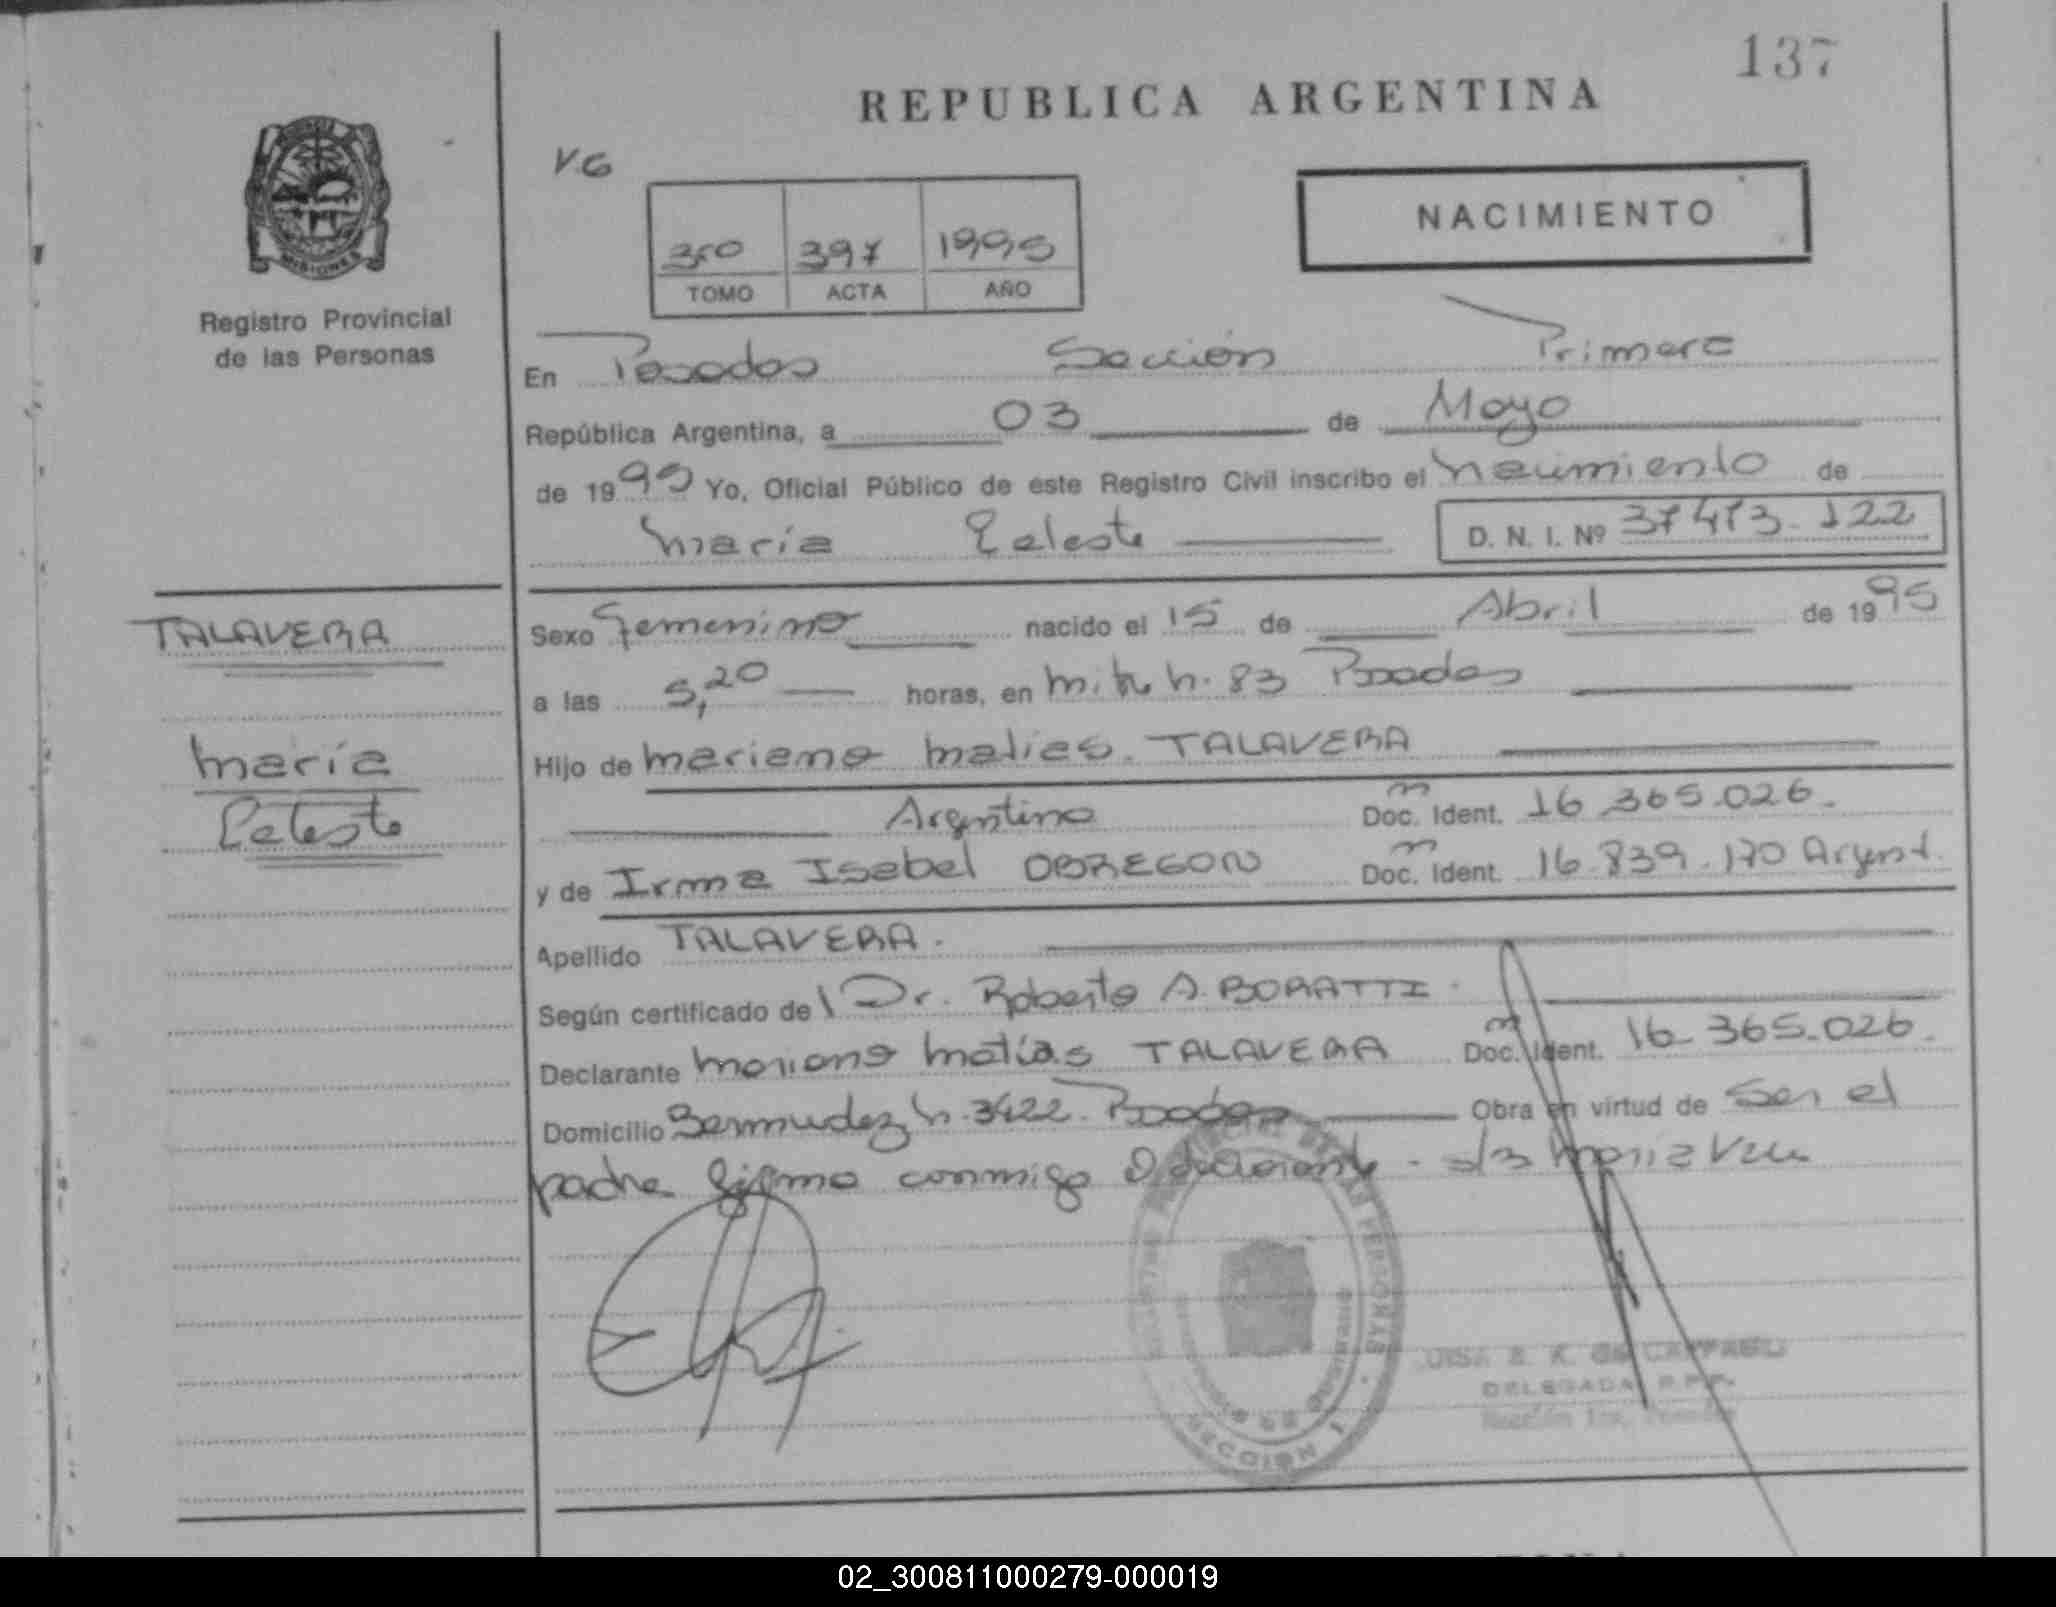 137
REPUBLICA ARGENTINA
V.G
NACIMIENTO
397 1995
TOMO ACTA AÑO
MISIONES
Registro Provincial
de las Personas
En Posadas Sección Primera
República Argentina, a 03 de Mayo
de 1995 Yo, Oficial Público de este Registro Civil inscribo el Nacimiento de
María Celeste D. N. I. Nº 37.473.122
TALAVERA
María
Celeste
Sexo Femenino nacido el 15 de Abril de 1995
a las 5,20 horas, en 83 Posadas
Hijo de Mariano Matías TALAVERA
Argentino Doc. Ident. 16.365.026.
y de Irma Isabel OBREGON Doc. Ident. 16.839.170 Argent.
Apellido TALAVERA.
Según certificado de Dr. Roberto A. BORATTI
Declarante Mariano Matías TALAVERA Doc. Ident. 16.365.026.
Domicilio Bermudez N. 3422 Posadas Obra en virtud de Ser el
padre firma conmigo el declarante
SECCION 1
DELEGADA R.P.P.
02_300811000279-000019